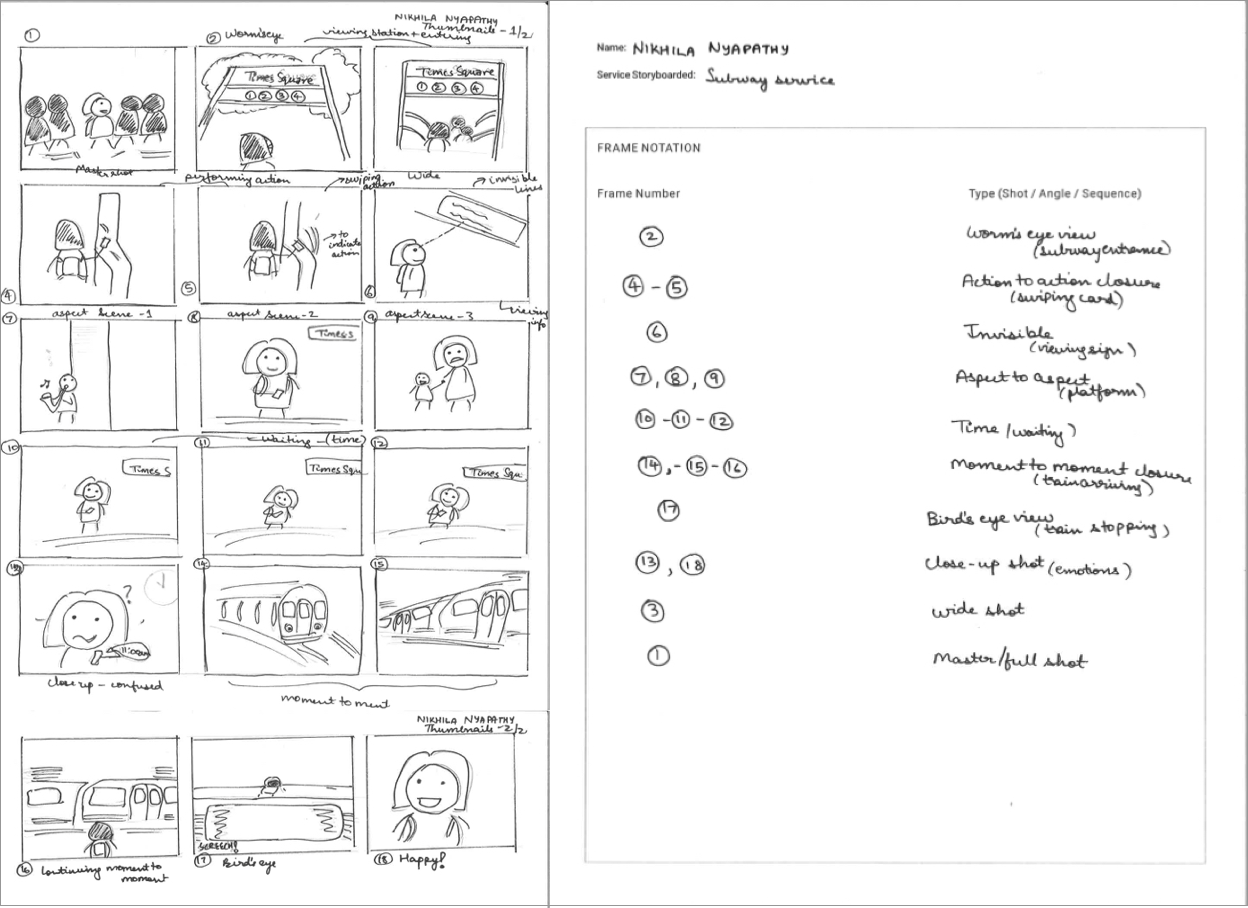 NIKHILA NYAPATHY
Thumbnails - 1/2
①
② Worm's eye
viewing station + entering
Times Square
① ② ③ ④
Times Square
① ② ③ ④
Master shot
performing action
swiping action
Wide
invisible lines
to indicate action
④
⑤
⑥
viewing info
⑦
aspect scene - 1
⑧
aspect scene - 2
⑨
aspect scene - 3
Times S
⑩
⑪
waiting - (time)
⑫
Times S
Times Squ
Times Squ
⑬
?
11:00am
⑭
⑮
close up - confused
moment to ment
NIKHILA NYAPATHY
Thumbnails - 2/2
SCREECH!
⑯ Continuing moment to moment
⑰ Bird's eye
⑱ Happy!
Name: NIKHILA NYAPATHY
Service Storyboarded: Subway service
FRAME NOTATION
Frame Number
Type (Shot / Angle / Sequence)
②
Worm's eye view
(subway entrance)
④ - ⑤
Action to action closure
(swiping card)
⑥
Invisible
(viewing sign)
⑦, ⑧, ⑨
Aspect to aspect
(platform)
⑩ - ⑪ - ⑫
Time (waiting)
⑭, - ⑮ - ⑯
Moment to moment closure
(train arriving)
⑰
Bird's eye view
(train stopping)
⑬, ⑱
close-up shot (emotions)
③
wide shot
①
Master/full shot